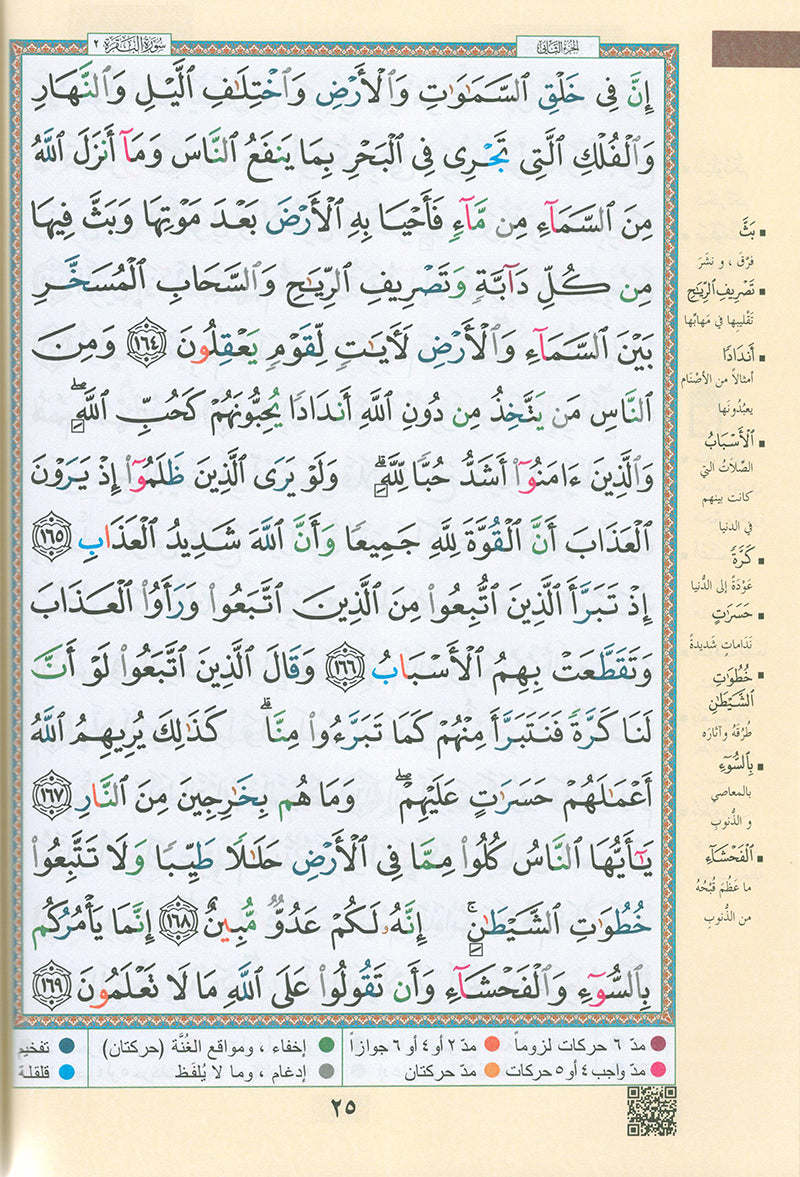 سُورَةُ البَقَرَةِ ٢
الجُزْءُ الثَّانِي
إِنَّ فِي خَلْقِ ٱلسَّمَٰوَٰتِ وَٱلْأَرْضِ وَٱخْتِلَٰفِ ٱلَّيْلِ وَٱلنَّهَارِ
وَٱلْفُلْكِ ٱلَّتِي تَجْرِي فِي ٱلْبَحْرِ بِمَا يَنفَعُ ٱلنَّاسَ وَمَآ أَنزَلَ ٱللَّهُ
مِنَ ٱلسَّمَآءِ مِن مَّآءٍ فَأَحْيَا بِهِ ٱلْأَرْضَ بَعْدَ مَوْتِهَا وَبَثَّ فِيهَا
مِن كُلِّ دَآبَّةٍ وَتَصْرِيفِ ٱلرِّيَٰحِ وَٱلسَّحَابِ ٱلْمُسَخَّرِ
بَيْنَ ٱلسَّمَآءِ وَٱلْأَرْضِ لَأٓيَٰتٍ لِّقَوْمٍ يَعْقِلُونَ ١٦٤ وَمِنَ
ٱلنَّاسِ مَن يَتَّخِذُ مِن دُونِ ٱللَّهِ أَندَادًا يُحِبُّونَهُمْ كَحُبِّ ٱللَّهِۖ
وَٱلَّذِينَ ءَامَنُوٓا۟ أَشَدُّ حُبًّا لِّلَّهِۗ وَلَوْ يَرَى ٱلَّذِينَ ظَلَمُوٓا۟ إِذْ يَرَوْنَ
ٱلْعَذَابَ أَنَّ ٱلْقُوَّةَ لِلَّهِ جَمِيعًا وَأَنَّ ٱللَّهَ شَدِيدُ ٱلْعَذَابِ ١٦٥
إِذْ تَبَرَّأَ ٱلَّذِينَ ٱتُّبِعُوا۟ مِنَ ٱلَّذِينَ ٱتَّبَعُوا۟ وَرَأَوُا۟ ٱلْعَذَابَ
وَتَقَطَّعَتْ بِهِمُ ٱلْأَسْبَابُ ١٦٦ وَقَالَ ٱلَّذِينَ ٱتَّبَعُوا۟ لَوْ أَنَّ
لَنَا كَرَّةً فَنَتَبَرَّأَ مِنْهُمْ كَمَا تَبَرَّءُوا۟ مِنَّاۗ كَذَٰلِكَ يُرِيهِمُ ٱللَّهُ
أَعْمَٰلَهُمْ حَسَرَٰتٍ عَلَيْهِمْۖ وَمَا هُم بِخَٰرِجِينَ مِنَ ٱلنَّارِ ١٦٧
يَٰٓأَيُّهَا ٱلنَّاسُ كُلُوا۟ مِمَّا فِي ٱلْأَرْضِ حَلَٰلًا طَيِّبًا وَلَا تَتَّبِعُوا۟
خُطُوَٰتِ ٱلشَّيْطَٰنِۚ إِنَّهُۥ لَكُمْ عَدُوٌّ مُّبِينٌ ١٦٨ إِنَّمَا يَأْمُرُكُم
بِٱلسُّوٓءِ وَٱلْفَحْشَآءِ وَأَن تَقُولُوا۟ عَلَى ٱللَّهِ مَا لَا تَعْلَمُونَ ١٦٩
بَثَّ
فرَّقَ ، و نشَرَ
تَصْرِيفِ ٱلرِّيَٰحِ
تَقْليبها في مَهابّها
أَندَادًا
أمثالاً من الأصْنام
يعبُدُونَها
ٱلْأَسْبَابُ
الصِّلاَتُ التي
كانت بينهم
في الدنيا
كَرَّةً
عَوْدَةً إلى الدُّنيا
حَسَرَٰتٍ
نَدَاماتٍ شَديدةً
خُطُوَٰتِ
ٱلشَّيْطَٰنِ
طُرُقَهُ وآثارَه
بِٱلسُّوٓءِ
بالمعاصي
و الذُّنوبِ
ٱلْفَحْشَآءِ
ما عَظُمَ قُبْحُهُ
من الذُّنوبِ
مدّ ٦ حركات لزوماً
مدّ ٢ أو ٤ أو ٦ جوازاً
إخفاء ، ومواقع الغُنَّة (حركتان)
تفخيم
مدّ واجب ٤ أو ٥ حركات
مدّ حركتان
إدغام ، وما لا يُلفَظ
قلقلة
٢٥